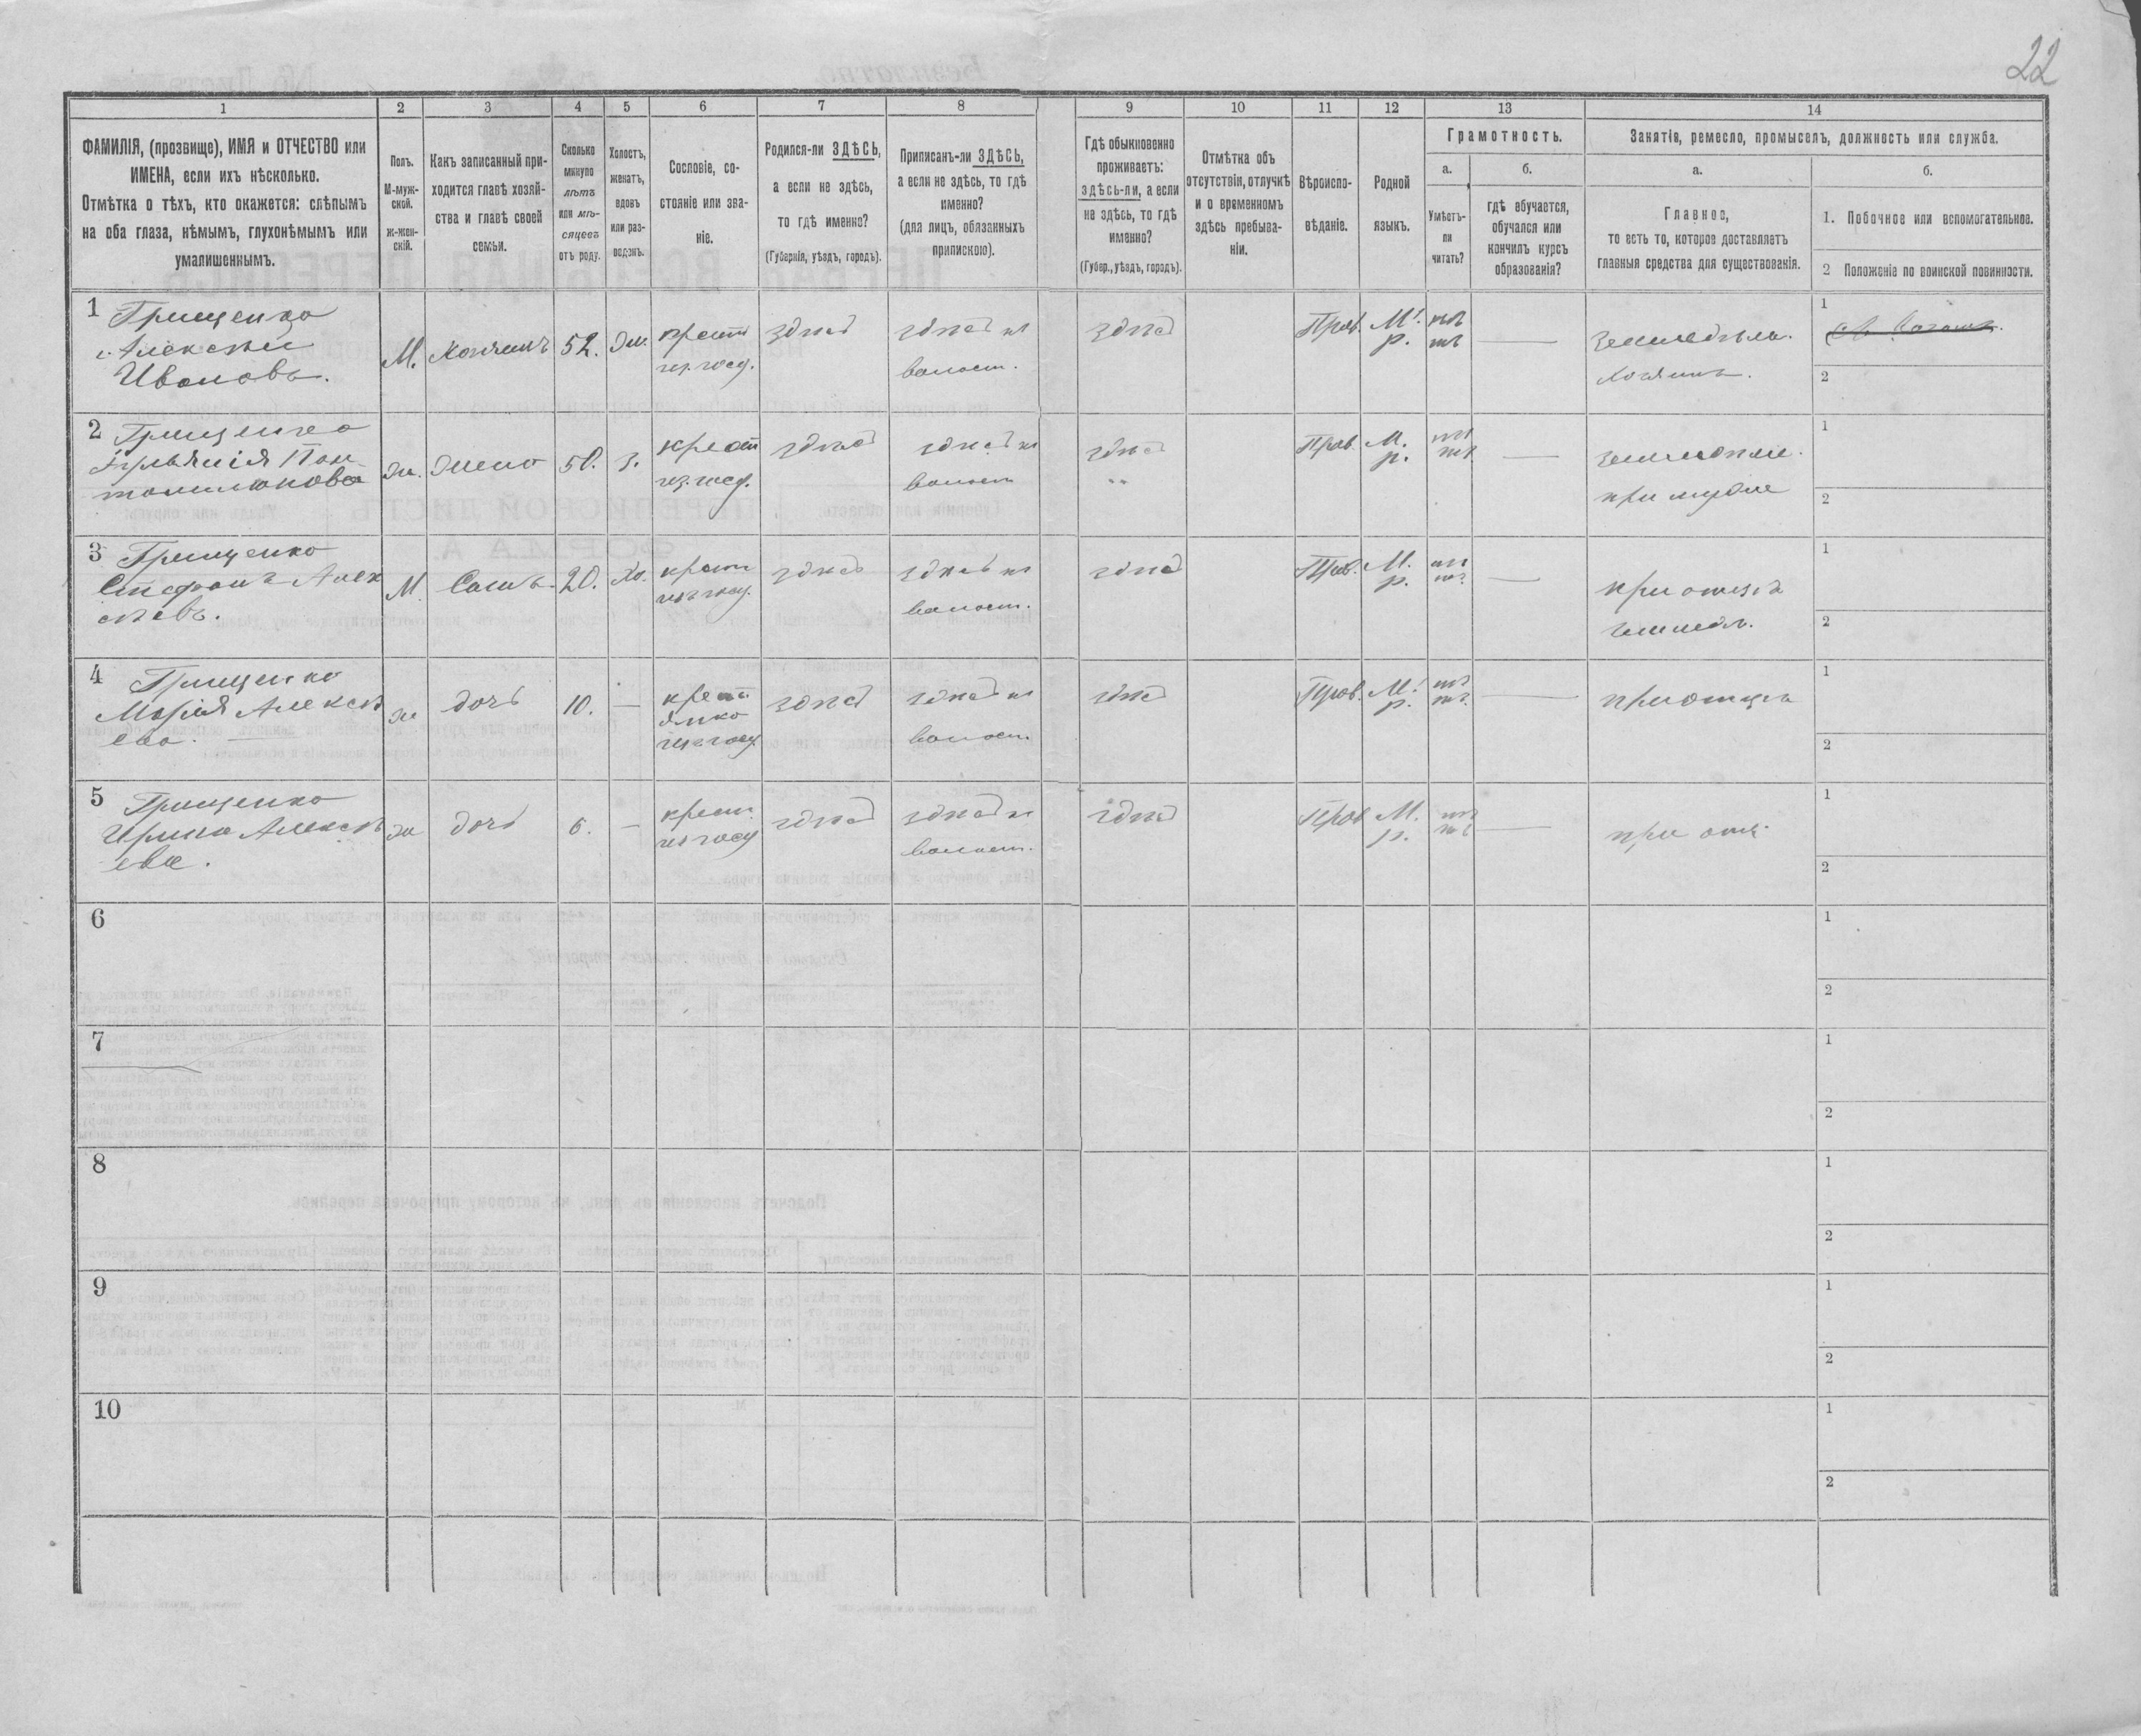 22
1 2 3 4 5 6 7 8 9 10 11 12 13 14
ФАМИЛІЯ, (прозвище), ИМЯ и ОТЧЕСТВО или
ИМЕНА, если ихъ нѣсколько.
Отмѣтка о тѣхъ, кто окажется: слѣпымъ
на оба глаза, нѣмымъ, глухонѣмымъ или
умалишеннымъ.
Полъ.
М-муж-
ской.
ж-жен-
скій.
Какъ записанный при-
ходится главѣ хозяй-
ства и главѣ своей
семьи.
Сколько
минуло
лѣтъ
или мѣ-
сяцевъ
отъ роду.
Холостъ,
женатъ,
вдовъ
или раз-
веденъ.
Сословіе, со-
стояніе или зва-
ніе.
Родился-ли ЗДѢСЬ,
а если не здѣсь,
то гдѣ именно?
(Губернія, уѣздъ, городъ).
Приписанъ-ли ЗДѢСЬ,
а если не здѣсь, то гдѣ
именно?
(для лицъ, обязанныхъ
припискою).
Гдѣ обыкновенно
проживаетъ:
здѣсь-ли, а если
не здѣсь, то гдѣ
именно?
(Губер., уѣздъ, городъ).
Отмѣтка объ
отсутствіи, отлучкѣ
и о временномъ
здѣсь пребыва-
ніи.
Вѣроиспо-
вѣданіе.
Родной
языкъ.
Грамотность.
а.
Умѣетъ-
ли
читать?
б.
гдѣ обучается,
обучался или
кончилъ курсъ
образованія?
Занятія, ремесло, промыселъ, должность или служба.
а.
Главное,
то есть то, которое доставляетъ
главныя средства для существованія.
б.
1. Побочное или вспомогательное.
2 Положеніе по воинской повинности.
1 Грищенко
Алексѣй
Ивановъ.
М. Хозяинъ 52. Жн.
крест
из. госуд.
здѣсь
здѣсь въ
волост.
здѣсь
Прав. М.
р.
нѣ
тъ
земледѣлъ.
Хозяинъ.
1
2
2 Грищенко
Жн. Жена 50. З.
крест
из. госуд.
здѣсь
здѣсь въ
волост
здѣсь
Прав М.
р.
нѣ
тъ
при мужѣ
1
2
3 Грищенко
Стефанъ Алек
сѣевъ.
М. Сынъ. 20. Хо.
крест
здѣсь
здѣсь въ
волост.
здѣсь
Прав. М.
р.
нѣ
тъ
при отцѣ
земледѣ.
1
2
4 Грищенко
Марія Алексѣ
ева.
Жн дочь 10. —
крест
янка
здѣсь
здѣсь въ
волост.
здѣсь
Прав. М.
р.
нѣ
тъ
при отцѣ
1
2
5 Грищенко
Ирина Алексѣ
ева.
Жн дочь 6. —
крест.
из госуд
здѣсь
здѣсь въ
волост.
здѣсь
Прав М.
р.
нѣ
тъ
при отц.
1
2
6 1
2
7 1
2
8 1
2
9 1
2
10 1
2